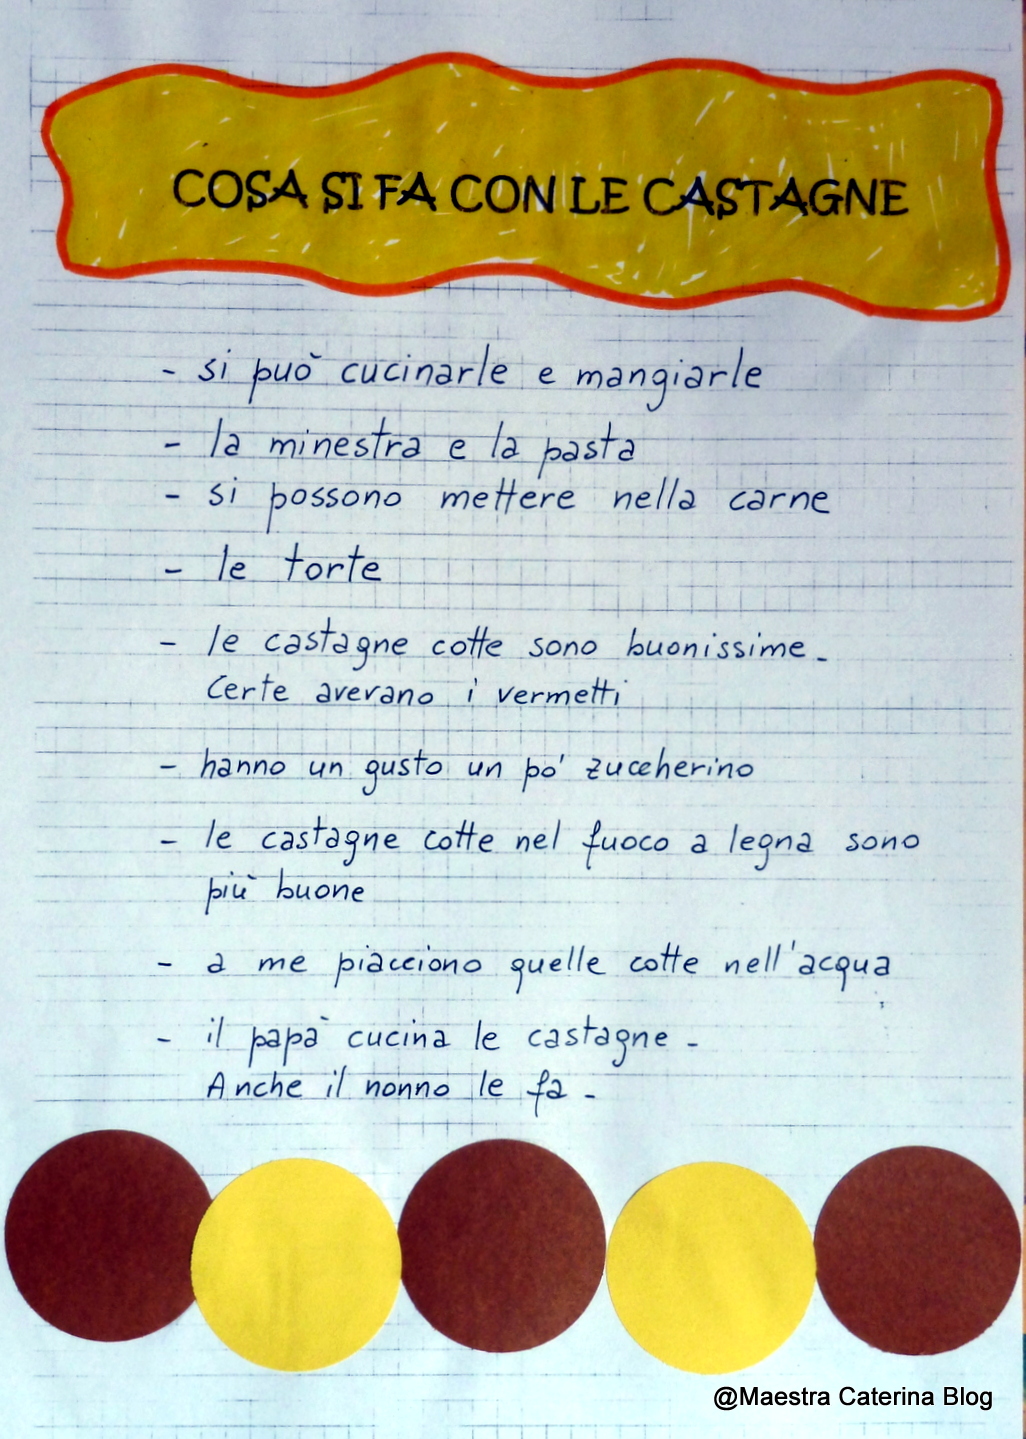 COSA SI FA CON LE CASTAGNE
- si può cucinarle e mangiarle
- la minestra e la pasta
- si possono mettere nella carne
- le torte
- le castagne cotte sono buonissime.
Certe averano i vermetti
- hanno un gusto un po' zuccherino
- le castagne cotte nel fuoco a legna sono
più buone
- a me piacciono quelle cotte nell'acqua
- il papà cucina le castagne.
Anche il nonno le fa.
@Maestra Caterina Blog